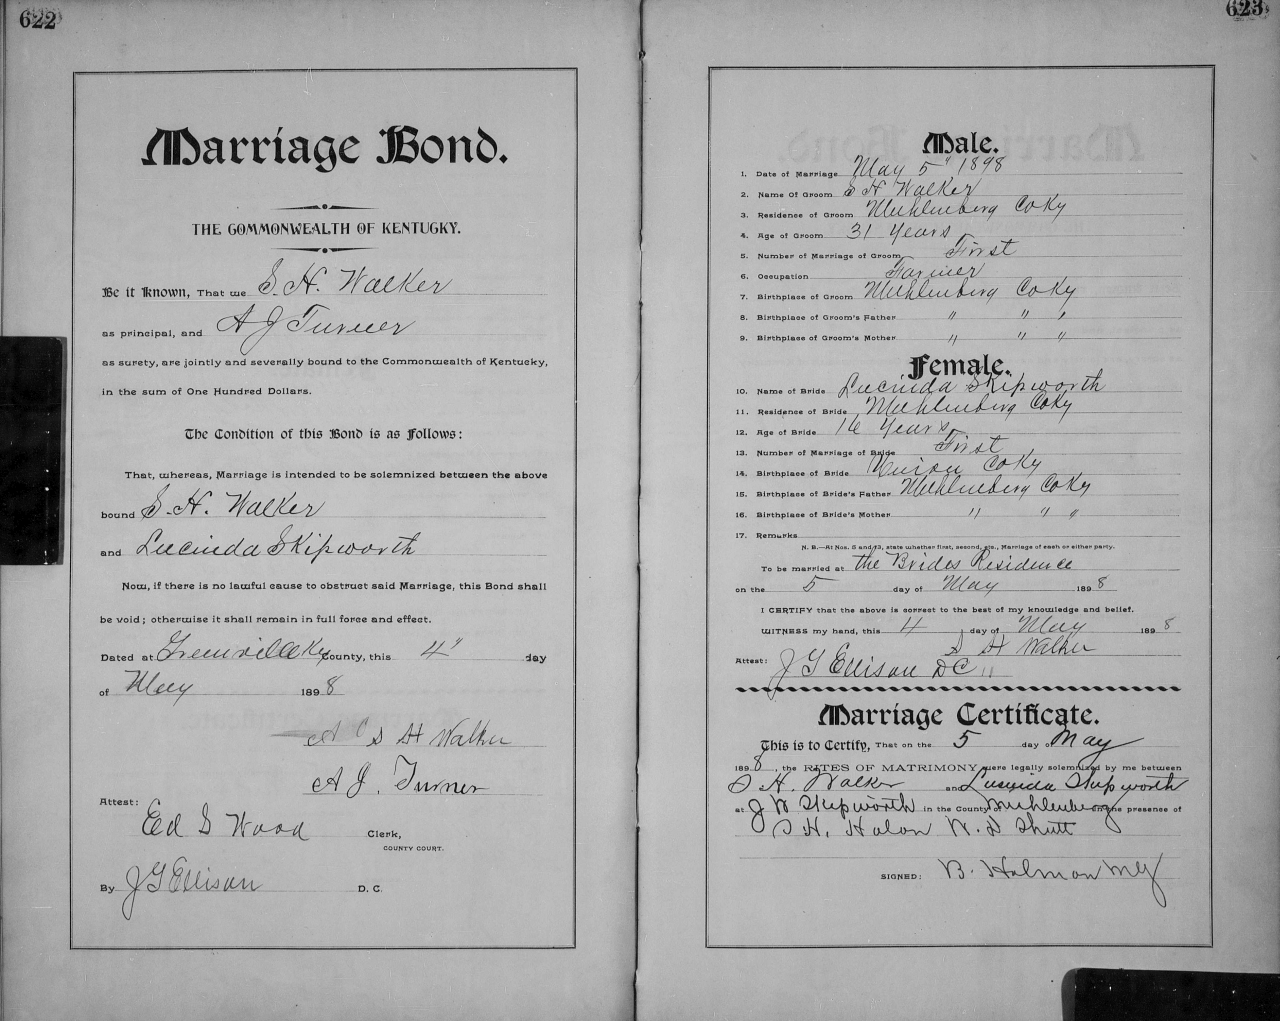 622
Marriage Bond.
THE COMMONWEALTH OF KENTUCKY.
Be it Known, That we S. H. Walker
as principal, and A J Turner
as surety, are jointly and severally bound to the Commonwealth of Kentucky,
in the sum of One Hundred Dollars.
The Condition of this Bond is as Follows:
That, whereas, Marriage is intended to be solemnized between the above
bound S. H. Walker
and Lucinda Skipworth
Now, if there is no lawful cause to obstruct said Marriage, this Bond shall
be void; otherwise it shall remain in full force and effect.
Dated at Greenville Ky County, this 4" day
of May 1898
S H Walker
A J. Turner
Attest:
Ed S Wood Clerk,
COUNTY COURT.
By J G Ellison D. C.
623
Male.
1. Date of Marriage May 5" 1898
2. Name Of Groom S H Walker
3. Residence of Groom Muhlenberg Co Ky
4. Age of Groom 31 Years
5. Number of Marriage of Groom First
6. Occupation Farmer
7. Birthplace of Groom Muhlenberg Co Ky
8. Birthplace of Groom's Father " " "
9. Birthplace of Groom's Mother " " "
Female.
10. Name of Bride Lucinda Skipworth
11. Residence of Bride Muhlenberg Co Ky
12. Age of Bride 16 Years
13. Number of Marriage of Bride First
14. Birthplace of Bride Union Co Ky
15. Birthplace of Bride's Father Muhlenberg Co Ky
16. Birthplace of Bride's Mother " " "
17. Remarks
N. B.—At Nos. 5 and 13, state whether first, second, etc., Marriage of each or either party.
To be married at the Brides Residence
on the 5 day of May 1898
I CERTIFY that the above is correct to the best of my knowledge and belief.
WITNESS my hand, this 4 day of May 1898
S H Walker
Attest: J G Ellison D C
Marriage Certificate.
This is to Certify, That on the 5 day of May
1898, the RITES OF MATRIMONY were legally solemnized by me between
S H. Walker and Lucinda Skipworth
at J W Skipworth in the County of Muhlenberg in the presence of
S H. Holon W. D Shutt
SIGNED: B. Holmon MG